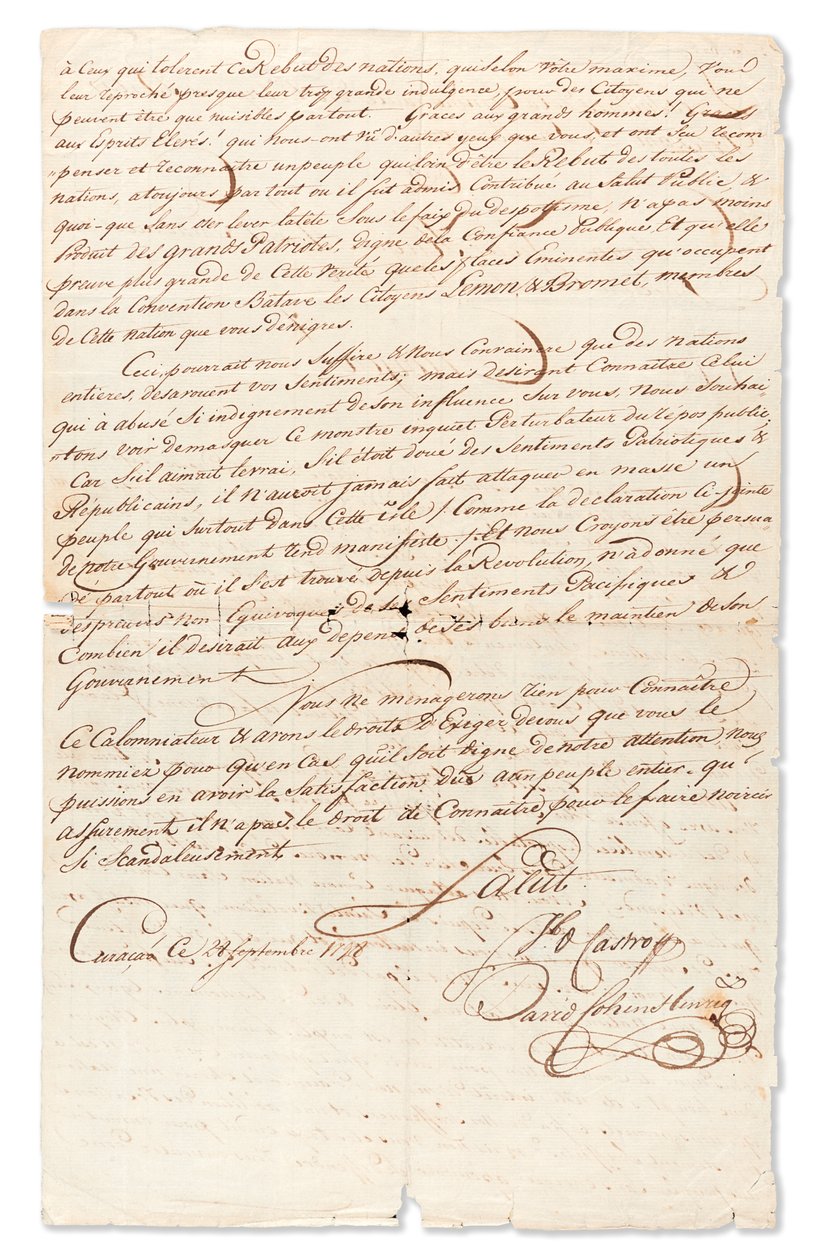 à Ceux qui tolerent Ce Rebut des nations, qui selon Votre maxime, Vous
leur reproché presque leur trop grande indulgence, pour des Citoyens qui ne
peuvent être que nuisibles partout. Graces aux grands hommes! Graces
aux Esprits Elevés! qui nous-ont vû d'autres yeux que vous, et ont seu recom
"penser et reconnaitre un peuple qui loin d'être le Rebut des toutes les
nations, a toujours par tout ou il fut admis Contribue au Salut Public, &
quoi-que Sans oser lever la tête Sous le faix du despotisme, n'a pas moins
Produit des grands Patriotes, digne de la Confiance Publique, Et qu'elle
preuve plus grande de Cette Verité que les places Eminentes qu'occupent
dans la Convention Batave les Citoyens Lemon, & Bromet, membres
de Cette nation que vous dénigres.
Ceci, pourrait nous Suffire & Nous Convaincre que des nations
entieres, desavouent vos Sentiments; mais desirant Connaitre Celui
qui à abusé Si indignement de son influence Sur vous, Nous Souhai
"tons voir demasquer Ce monstre inquiet Perturbateur du repos public,
Car S'il aimait le vrai, S'il étoit doué des Sentiments Patriotiques &
Républicains, il n'auroit jamais fait attaquer en masse un
peuple qui Surtout dans Cette isle / Comme la declaration Ci-jointe
de notre Gouvernement rend manifeste /. Et nous Croyons être persua
dé partout où il s'est trouvé depuis la Revolution, n'à donné que
des preuves non Equivoques de ses Sentiments Pacifiques &
Combien il desirait aux depens de ses biens le maintien de son
Gouvernement
Nous ne menagerons rien pour Connaître
Ce Calomniateur & avons le droits D'Exiger de vous que vous le
nommiez pour qu'en Cas, qu'il soit digne de notre attention, nous
puissions en avoir la Satisfaction düe a un peuple entier, qu'
assurement il n'a pas le droit de Connaître, pour le faire noircir
Si Scandaleusement
Salut
Curaçaó Ce 28 Septembre 17
Jb. D Castro
David Cohen Henriq